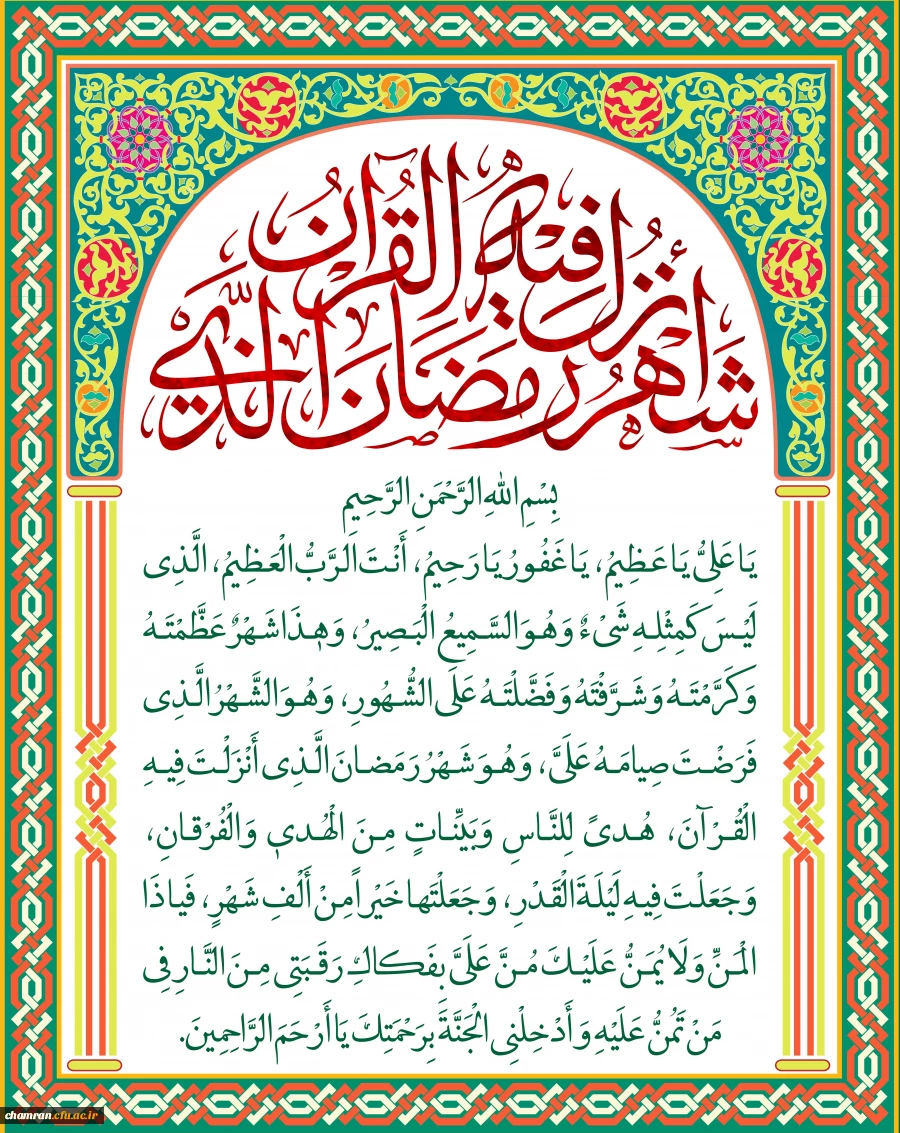 شَهْرُ رَمَضَانَ الَّذِي
أُنزِلَ فِيهِ الْقُرْآنُ
بِسْمِ اللهِ الرَّحْمَنِ الرَّحِيمِ
يَا عَلِيُّ يَا عَظِيمُ، يَا غَفُورُ يَا رَحِيمُ، أَنْتَ الرَّبُّ الْعَظِيمُ، الَّذِى
لَيْسَ كَمِثْلِهِ شَىْءٌ وَهُوَ السَّمِيعُ الْبَصِيرُ، وَهٰذَا شَهْرٌ عَظَّمْتَهُ
وَكَرَّمْتَهُ وَشَرَّفْتَهُ وَفَضَّلْتَهُ عَلَى الشُّهُورِ، وَهُوَ الشَّهْرُ الَّذِى
فَرَضْتَ صِيامَهُ عَلَىَّ، وَهُوَ شَهْرُ رَمَضانَ الَّذِى أَنْزَلْتَ فِيهِ
الْقُرْآنَ، هُدىً لِلنَّاسِ وَبَيِّنَاتٍ مِنَ الْهُدىٰ وَالْفُرْقانِ،
وَجَعَلْتَ فِيهِ لَيْلَةَ الْقَدْرِ، وَجَعَلْتَها خَيْراً مِنْ أَلْفِ شَهْرٍ، فَيا ذَا
الْمَنِّ وَلَا يُمَنُّ عَلَيْكَ مُنَّ عَلَىَّ بِفَكاكِ رَقَبَتِى مِنَ النَّارِ فِى
مَنْ تَمُنُّ عَلَيْهِ وَأَدْخِلْنِى الْجَنَّةَ بِرَحْمَتِكَ يَا أَرْحَمَ الرَّاحِمِينَ.
chamran.cfu.ac.ir